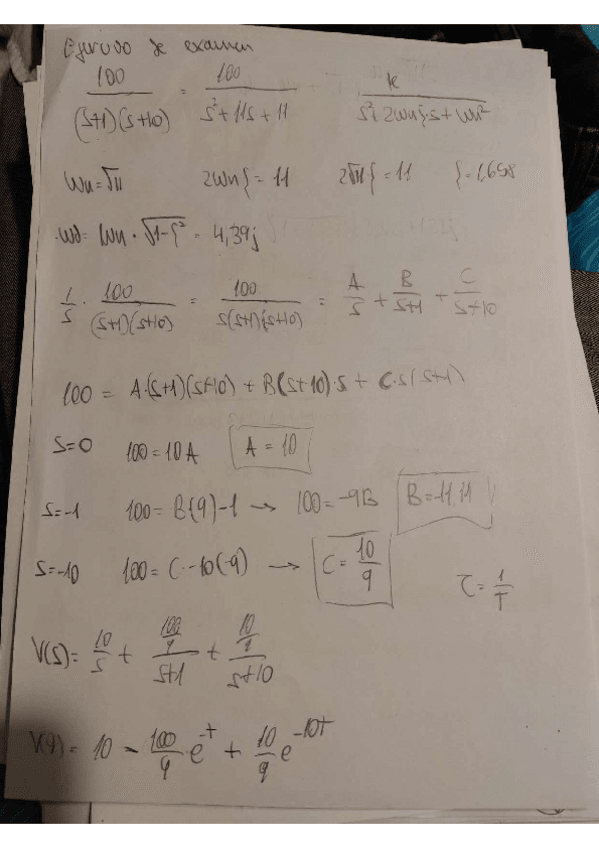 Ejercicio de examen
100/((s+1)(s+10)) = 100/(s²+11s+11) k/(s²+2wnξ·s+wn²)
wn=√11 2wnξ=11 2√11ξ=11 ξ=1,658
wd= wn·√(1-ξ²) = 4,39j
1/s · 100/((s+1)(s+10)) = 100/(s(s+1)(s+10)) = A/s + B/(s+1) + C/(s+10)
100 = A·(s+1)(s+10) + B(s+10)·s + C·s(s+1)
s=0 100=10A A=10
s=-1 100=B(9)-1 → 100=-9B B=-11,11
s=-10 100=C·-10(-9) → C=10/9
τ=1/T
V(s)= 10/s + (100/9)/(s+1) + (10/9)/(s+10)
= 10 - 100/9·e^-t + 10/9 e^-10t